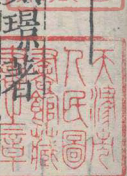 璟著
天津市
人民圖
書館藏
書之章